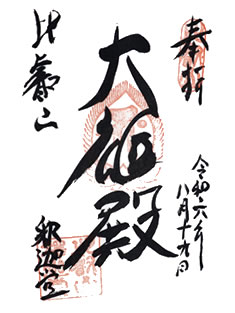 奉拝
令和六年
八月十九日
大雄殿
比叡山
釈迦堂